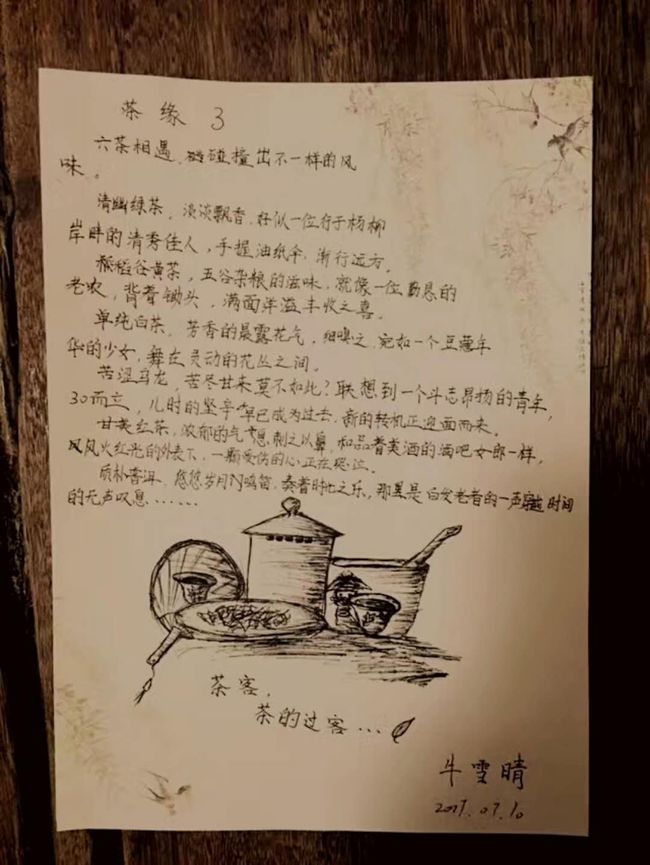 茶缘 3
六茶相遇、碰撞出不一样的风
味。
清幽绿茶，淡淡飘香，好似一位行于杨柳
岸畔的清秀佳人，手握油纸伞，渐行远方。
稻谷黄茶，五谷杂粮的滋味，就像一位勤恳的
老农，背着锄头，满面洋溢丰收之喜。
单纯白茶，芳香的晨露花气，细嗅之，宛如一个豆蔻年
华的少女，舞在灵动的花丛之间。
苦涩乌龙，苦尽甘来莫不如此？联想到一个斗志昂扬的青年，
30而立，儿时的坚辛早已成为过去，新的转机正迎面而来。
甘美红茶，浓郁的气息刺之以鼻，和品着美酒的酒吧女郎一样，
风风火红光的外表下，一颗受伤的心正在哭泣。
质朴普洱，悠悠岁月鸣笛，奏着时光之乐，那里是白发老者的一声穿越时间
的无声叹息……
茶客，
茶的过客…
牛雪晴
2017.07.10